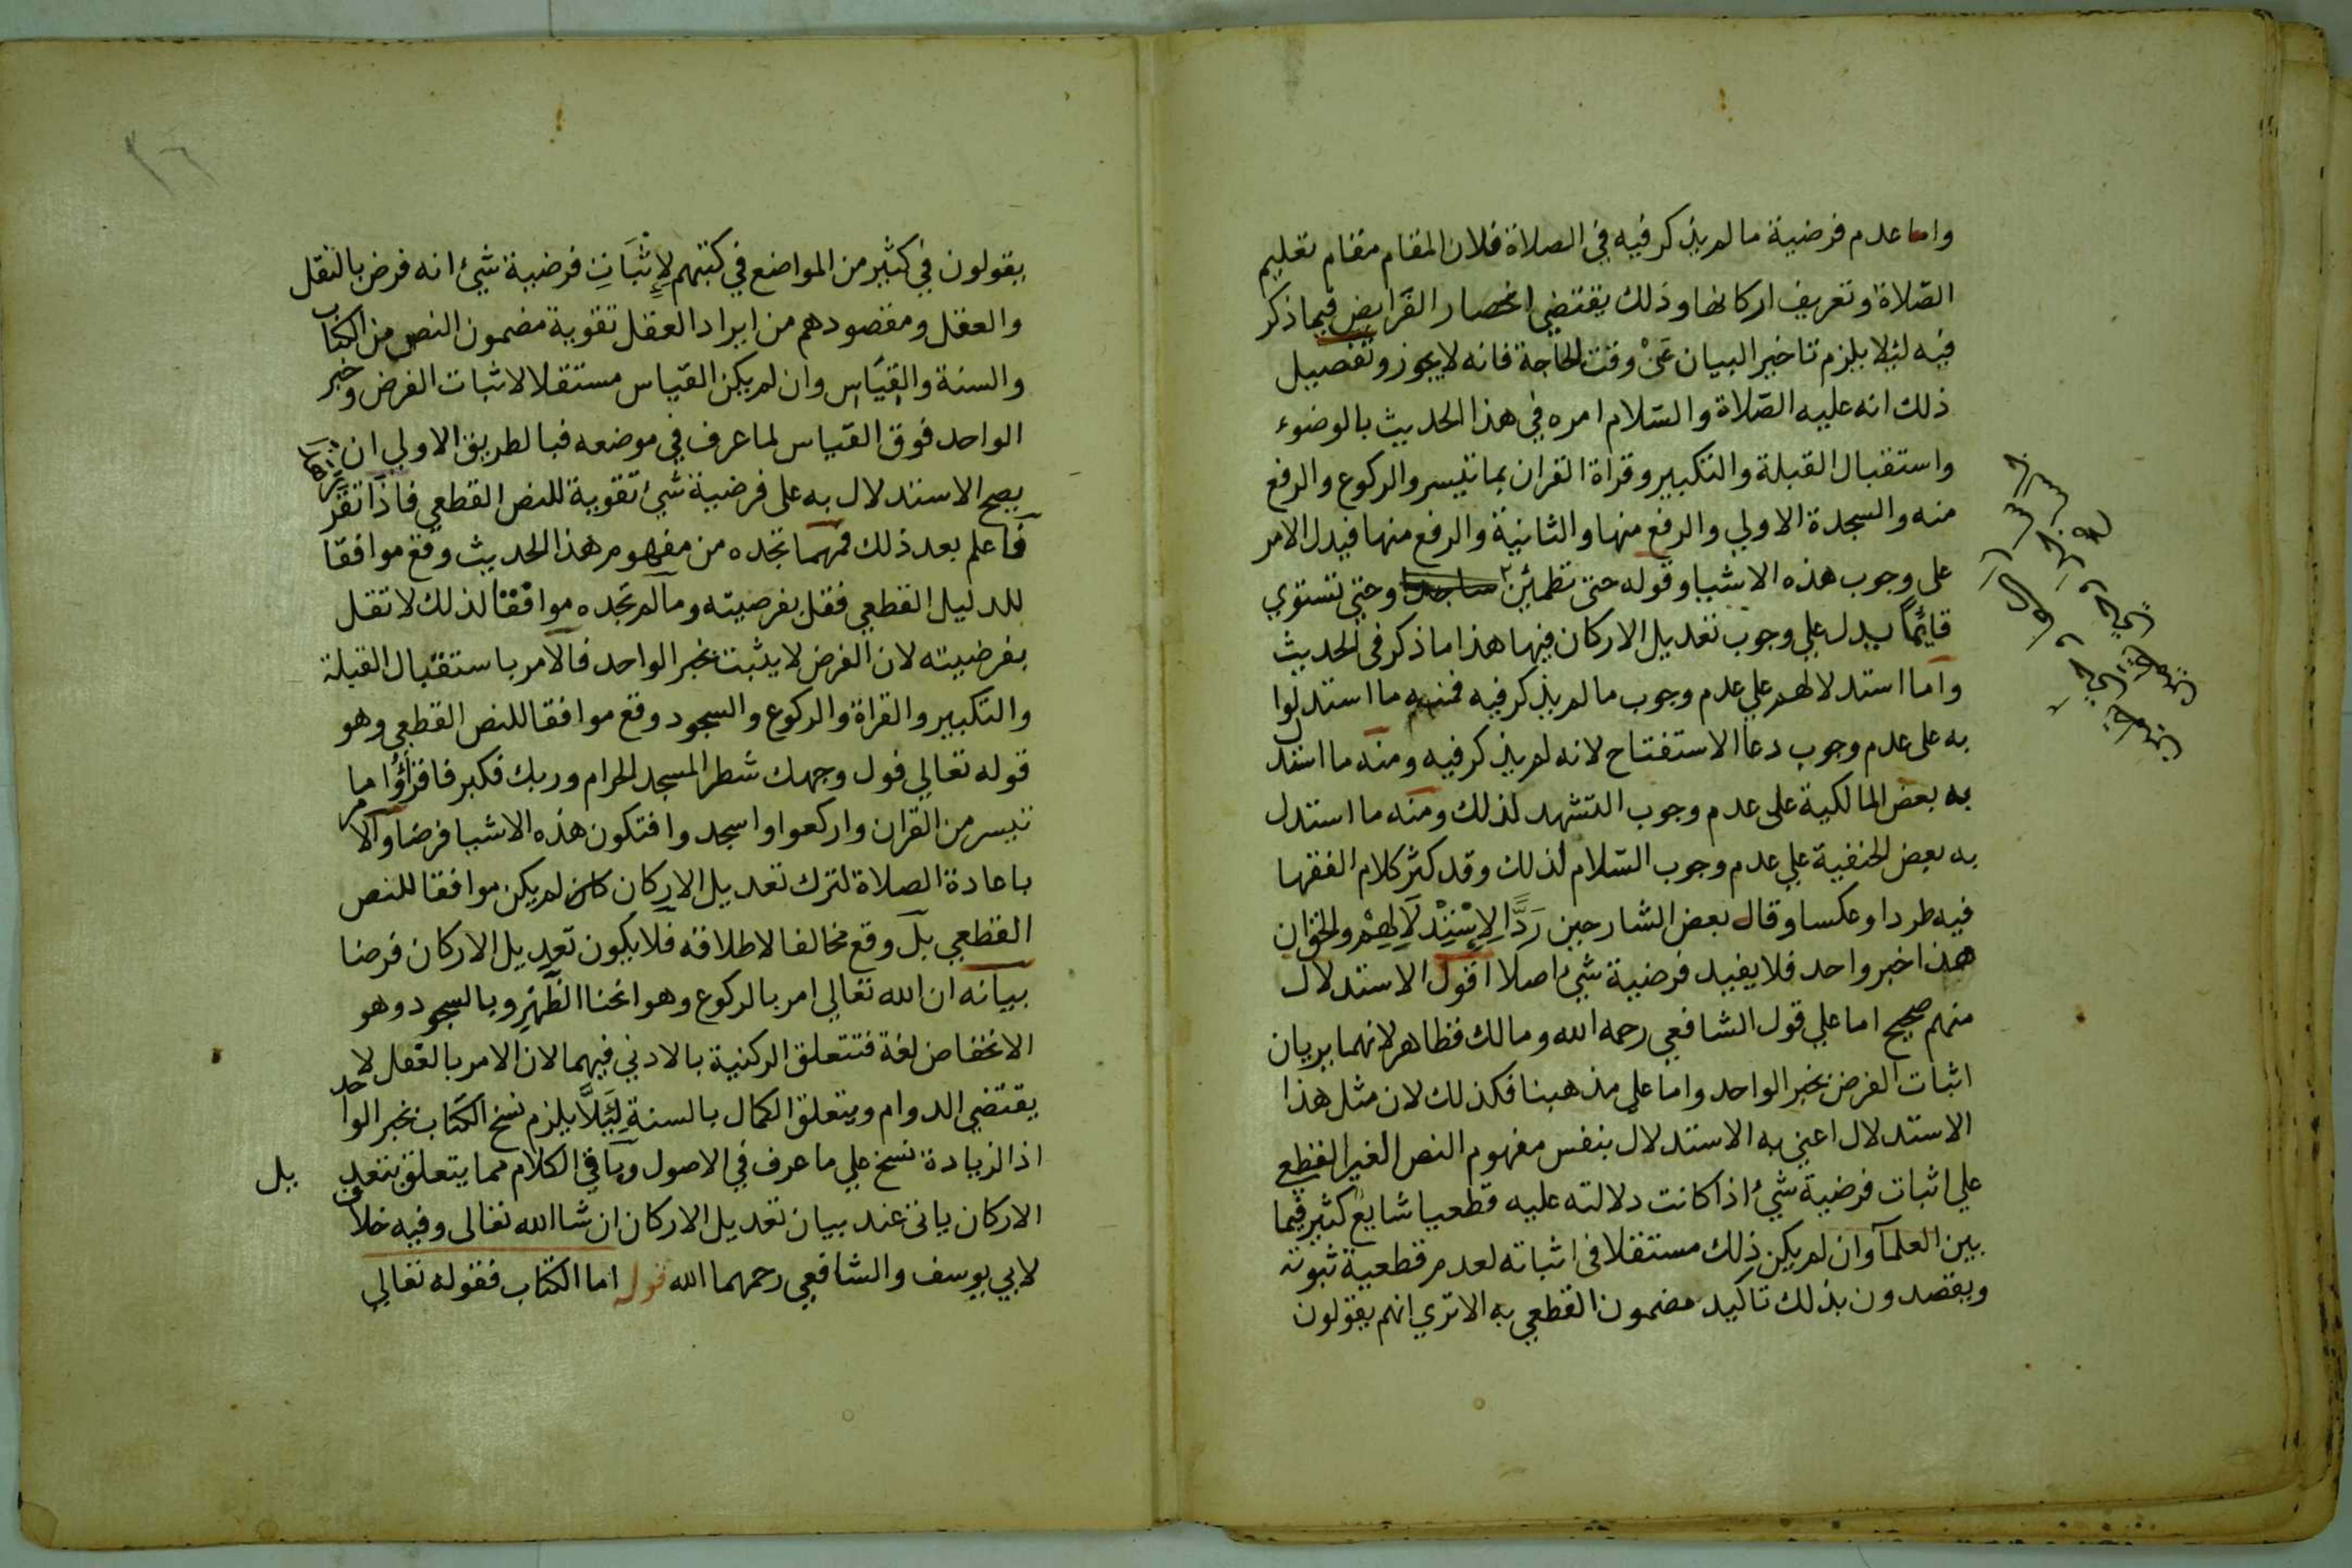 واما عدم فرضية ما لم يذكر فيه في الصلاة فلان المقام مقام تعليم
الصّلاة وتعريف اركانها وذلك يقتضي انحصار الفرايض فيما ذكر
فيه ليلا يلزم تاخير البيان عَنْ وقت الحاجة فانه لا يجوز وتفصيل
ذلك انه عليه الصّلاة والسّلام امره في هذا الحديث بالوضوء
واستقبال القبلة والتكبير وقراة القران بما تيسر والركوع والرفع
منه والسجدة الاولي والرفع منها والثانية والرفع منها فيدل الامر
على وجوب هذه الاشيا وقوله حتى تطمئن ساجدا وحتي تستوي
قائمًا يدل علي وجوب تعديل الاركان فيها هذا ما ذكر في الحديث
واما استدلالهم علي عدم وجوب ما لم يذكر فيه فمنه ما استدلوا
به على عدم وجوب دعا الاستفتاح لانه لم يذكر فيه ومنه ما استدل
به بعض المالكية على عدم وجوب التشهد لذلك ومنه ما استدل
به بعض الحنفية علي عدم وجوب السّلام لذلك وقد كثر كلام الفقها
فيه طردا وعكسا وقال بعض الشارحين رَدًّا لِاِسْتِدْلَالِهِمْ والحق ان
هذا خبر واحد فلا يفيد فرضية شئ اصلا اقول الاستدلال
منهم صحيح اما علي قول الشافعي رحمه الله ومالك فظاهر لانهما يريان
اثبات الفرض بخبر الواحد واما علي مذهبنا فكذلك لان مثل هذا
الاستدلال اعني به الاستدلال بنفس مفهوم النص الغير القطعي
علي اثبات فرضية شئ اذا كانت دلالته عليه قطعيا شايع كثير فيما
بين العلمآ وان لم يكن ذلك مستقلا في اثباته لعدم قطعية ثبوته
ويقصدون بذلك تاكيد مضمون القطعي به الا تري انهم يقولون
يقولون في كثير من المواضع في كتبهم لِإِثْبَاتِ فرضية شئ انه فرض بالنقل
والعقل ومقصودهم من ايراد العقل تقوية مضمون النص من الكتاب
والسنة والقِيَاس وان لم يكن القياس مستقلا لاثبات الفرض وخبر
الواحد فوق القياس لما عرف في موضعه فبالطريق الاولي ان
يصح الاستدلال به على فرضية شئ تقوية للنص القطعي فاذا تقرر
فاعلم بعد ذلك فمهما تجده من مفهوم هذا الحديث وقع موافقا
للدليل القطعي فقل بفرضيته وما لم تجده موافقا لذلك لا تقل
بفرضيته لان الفرض لا يثبت بخبر الواحد فالامر باستقبال القبلة
والتكبير والقراة والركوع والسجود وقع موافقا للنص القطعي وهو
قوله تعالي فول وجهك شطر المسجد الحرام وربك فكبر فاقرؤا ما
تيسر من القران واركعوا واسجدوا فتكون هذه الاشيا فرضا والامر
باعادة الصلاة لترك تعديل الاركان كان لم يكن موافقا للنص
القطعي بل وقع مخالفا لاطلاقه فلا يكون تعديل الاركان فرضا
بيانه ان الله تعالي امر بالركوع وهو انحنا الظهر وبالسجود وهو
الانخفاض لغة فتتعلق الركنية بالادني فيهما لان الامر بالفعل لا
يقتضي الدوام ويتعلق الكمال بالسنة لِيَلاَّ يلزم نسخ الكتاب بخبر الواحد
اذ الزيادة نسخ علي ما عرف في الاصول وباقي الكلام مما يتعلق بتعديل
الاركان ياتى عند بيان تعديل الاركان ان شا الله تعالى وفيه خلاف
لابي يوسف والشافعي رحمهما الله قوله اما الكتاب فقوله تعالي